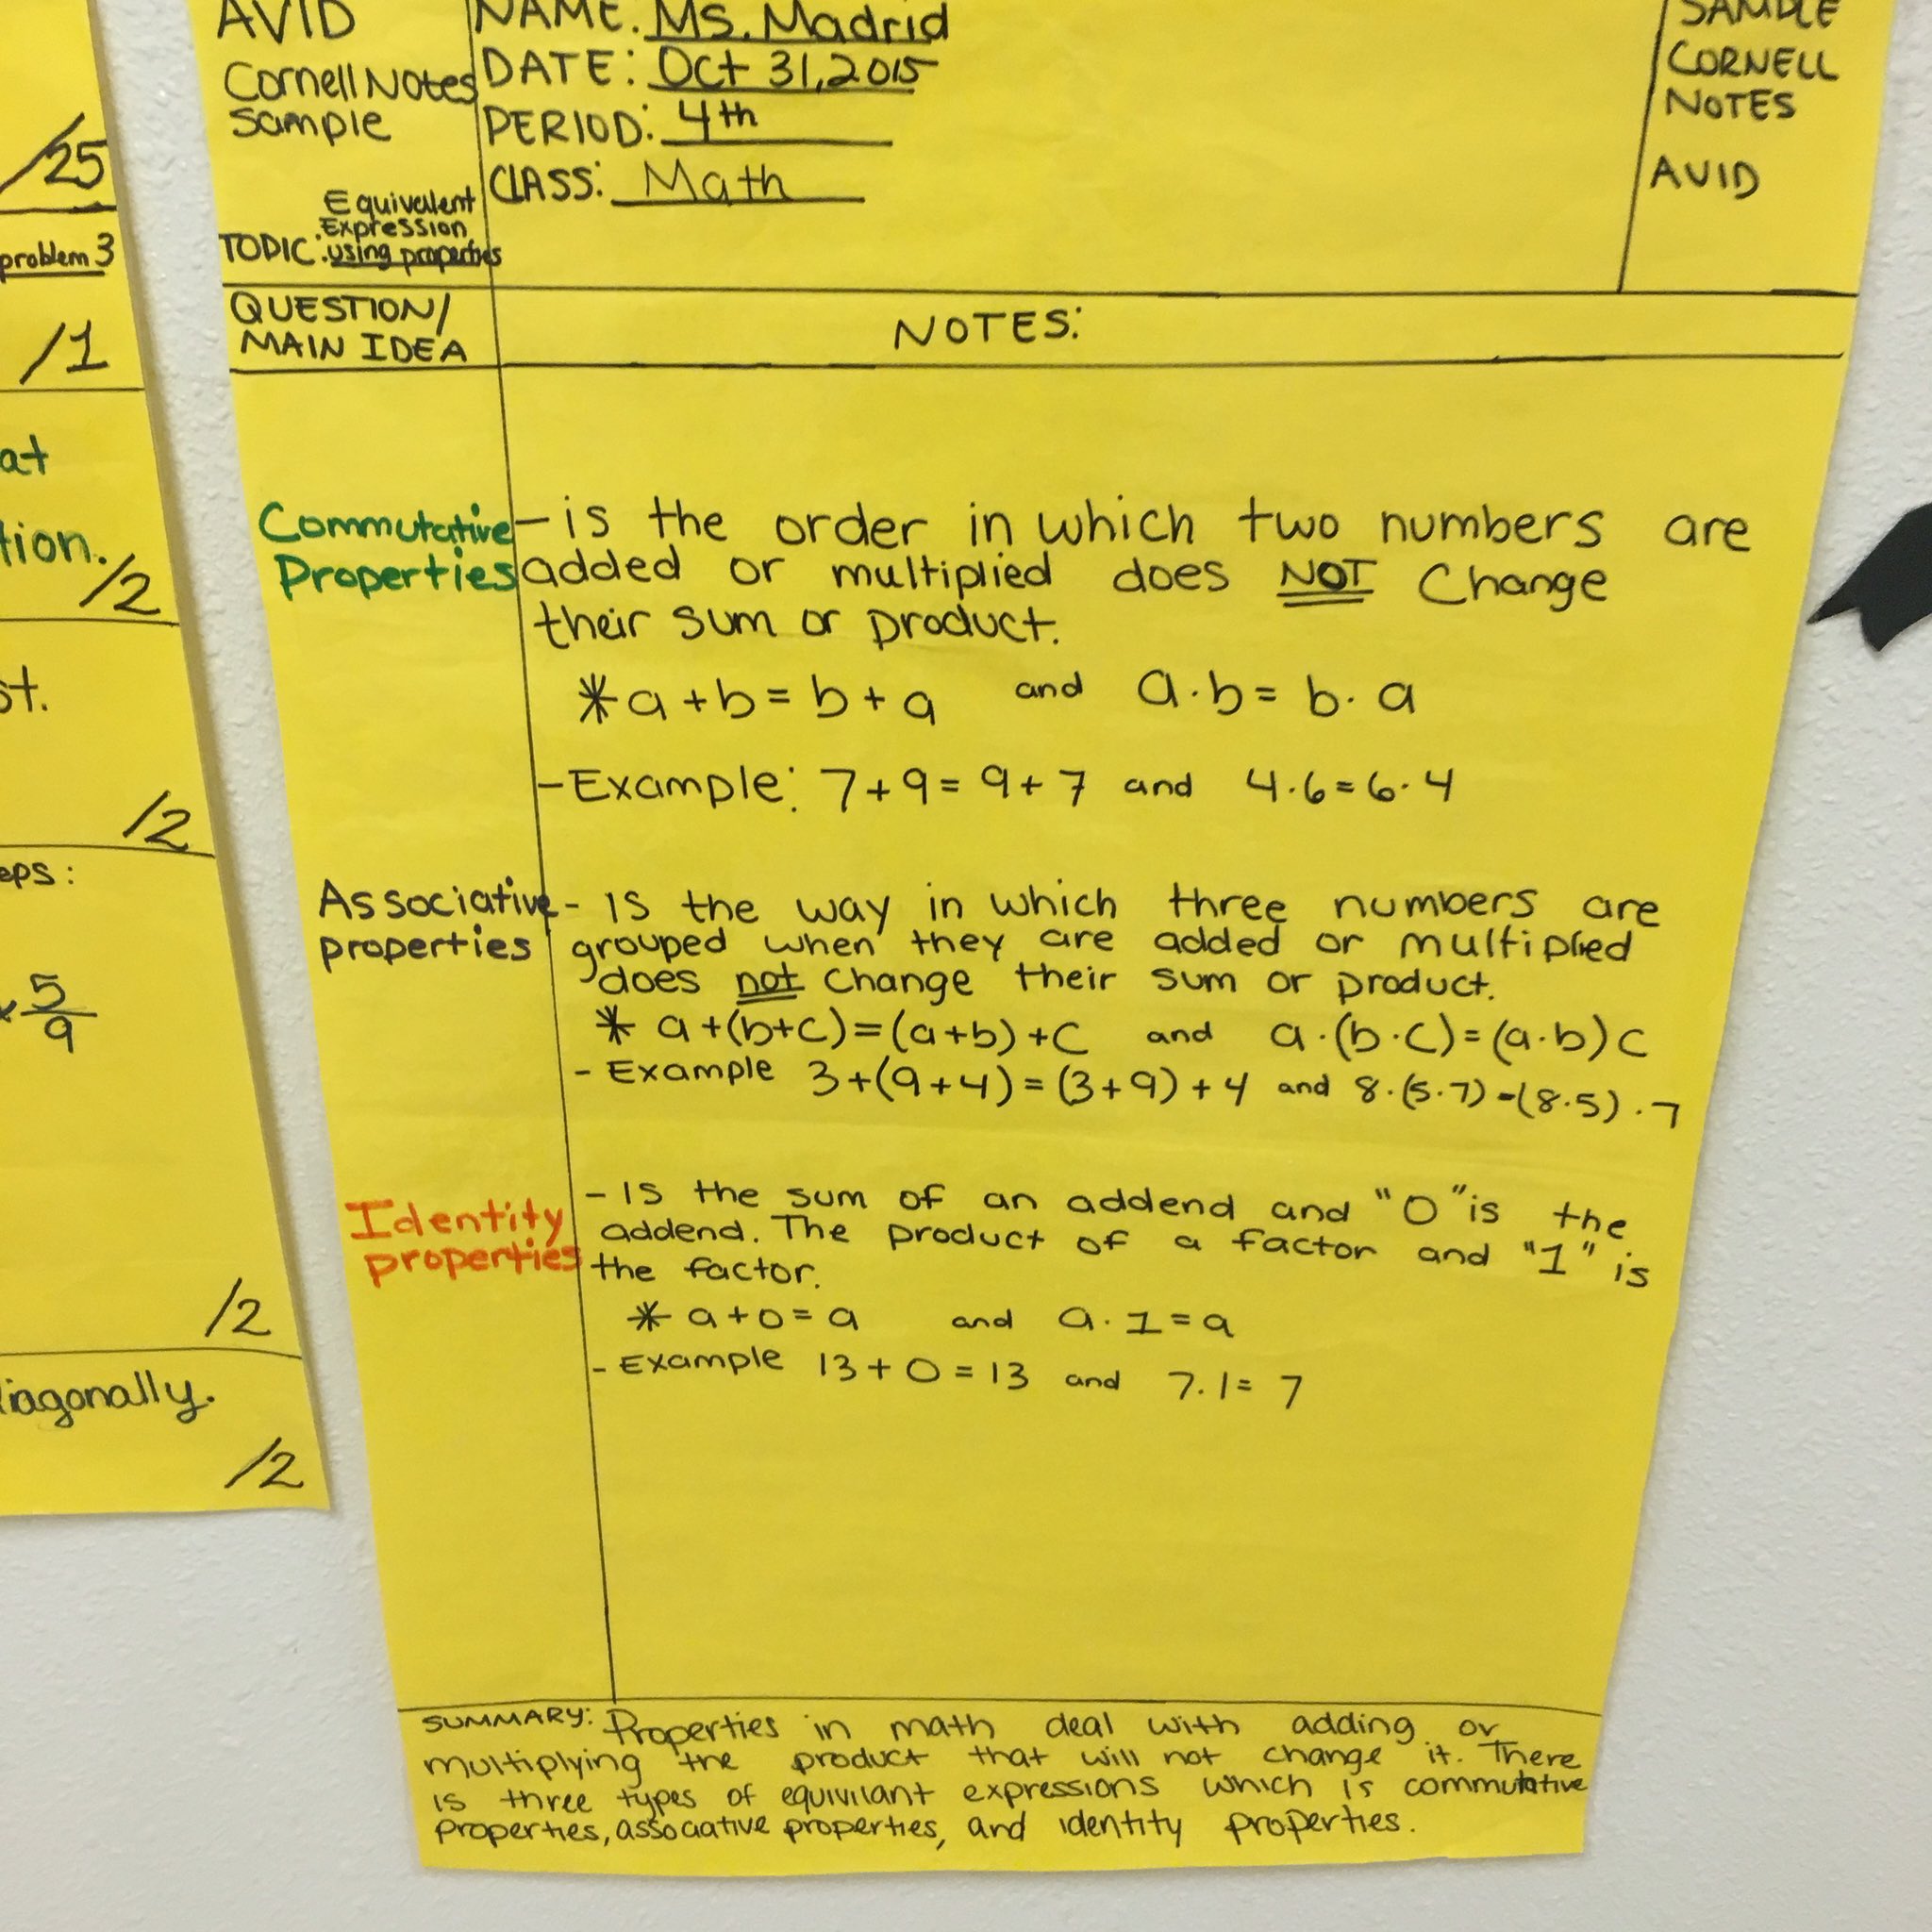 /25
problem 3
/1
at
tion.
/2
st.
/2
eps:
5
9
/2
iagonally.
/2
AVID
Cornell Notes
Sample
TOPIC: Equivalent
Expression
using properties
NAME: Ms. Madrid
DATE: Oct 31, 2015
PERIOD: 4th
CLASS: Math
SAMPLE
CORNELL
NOTES
AVID
QUESTION/
MAIN IDEA
NOTES:
Commutative
Properties
- is the order in which two numbers are
added or multiplied does NOT Change
their sum or product.
* a + b = b + a and a · b = b · a
- Example: 7 + 9 = 9 + 7 and 4 · 6 = 6 · 4
Associative
properties
- Is the way in which three numbers are
grouped when they are added or multiplied
does not change their sum or product.
* a + (b + c) = (a + b) + c and a · (b · c) = (a · b) c
- Example 3 + (9 + 4) = (3 + 9) + 4 and 8 · (5 · 7) = (8 · 5) · 7
Identity
properties
- Is the sum of an addend and "0" is the
addend. The product of a factor and "1" is
the factor.
* a + 0 = a and a · 1 = a
- Example 13 + 0 = 13 and 7 · 1 = 7
SUMMARY: Properties in math deal with adding or
multiplying the product that will not change it. There
is three types of equivilant expressions which is commutative
properties, associative properties, and identity properties.